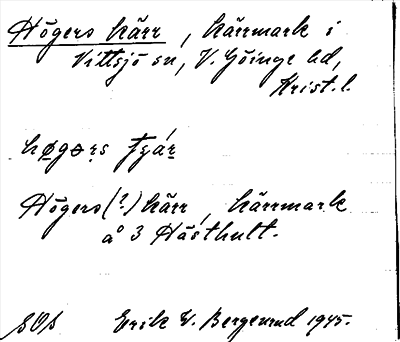 Högers kärr, kärrmark i
Vittsjö sn, V. Göinge hd,
Krist. l.
Högers(?) kärr, kärrmark
å 3 Hästhult.
SOS Erik W. Bergenrud 1945.